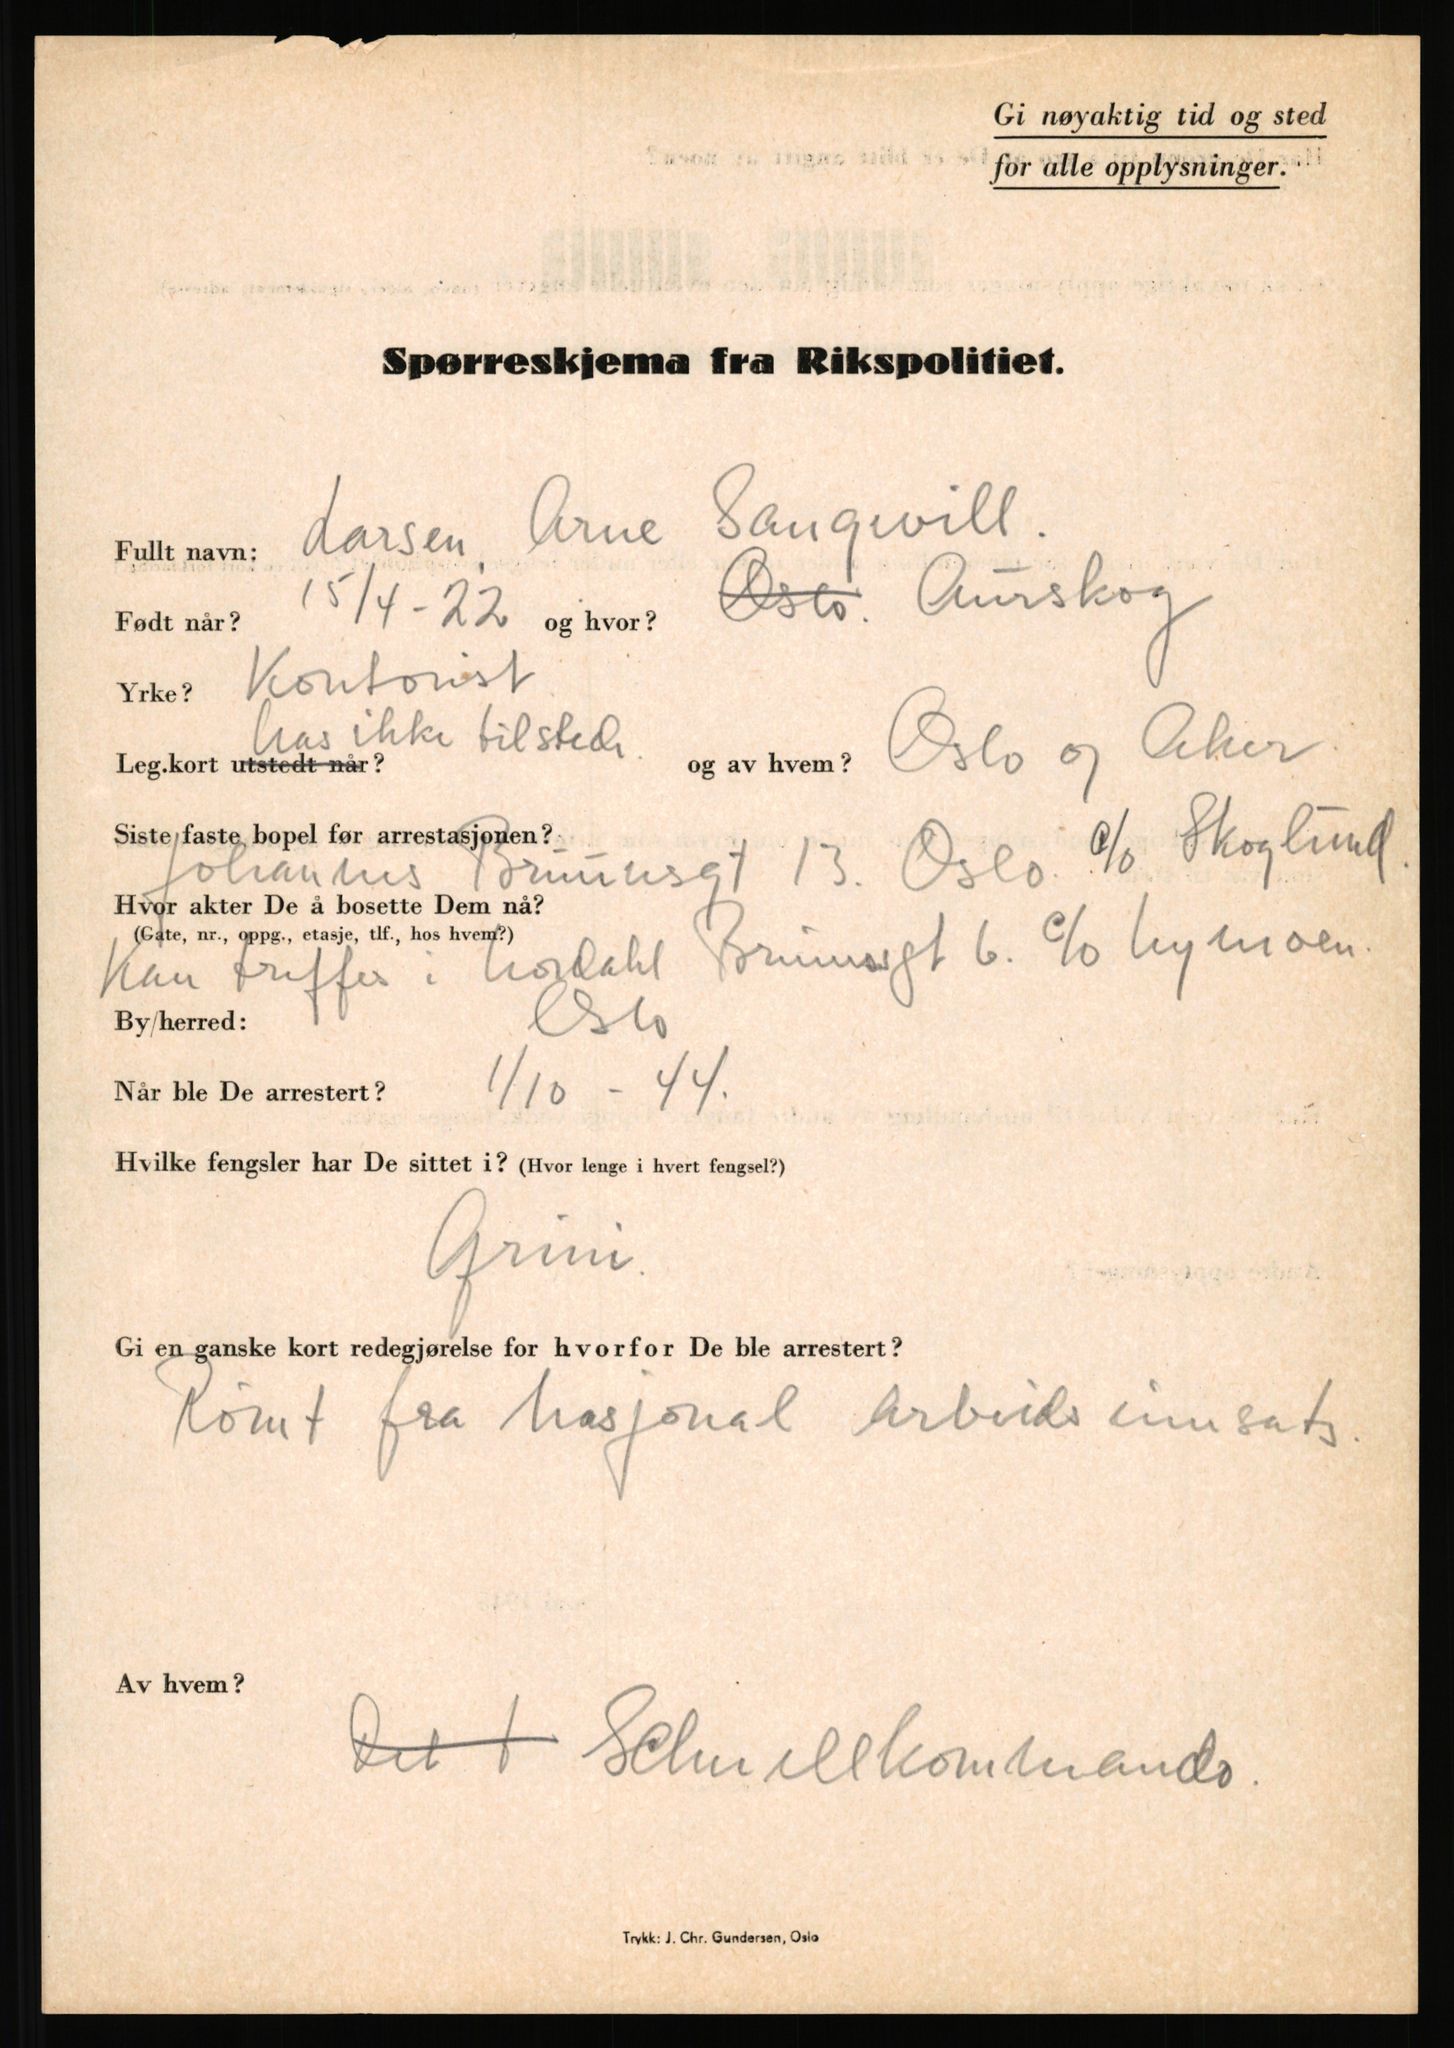 Gi nøyaktig tid og sted
for alle opplysninger.
Spørreskjema fra Rikspolitiet.
Fullt navn: Larsen, Arne Sangwill.
Født når? 15/4-22 og hvor? Oslo. Aurskog
Yrke? Kontorist
has ikke tilstede
Leg.kort utstedt når? og av hvem? Oslo og Aker.
Siste faste bopel før arrestasjonen?
Johannes Bruunsgt 13. Oslo. c/o Skoglund.
Hvor akter De å bosette Dem nå?
(Gate, nr., oppg., etasje, tlf., hos hvem?)
Kan treffes i Nordahl Brunsgt 6. c/o Nymoen.
By/herred: Oslo
Når ble De arrestert? 1/10 - 44.
Hvilke fengsler har De sittet i? (Hvor lenge i hvert fengsel?)
Grini.
Gi en ganske kort redegjørelse for hvorfor De ble arrestert?
Rømt fra Nasjonal Arbeidsinnsats.
Av hvem?
Det t Schnellkommando.
Trykk: J. Chr. Gundersen, Oslo